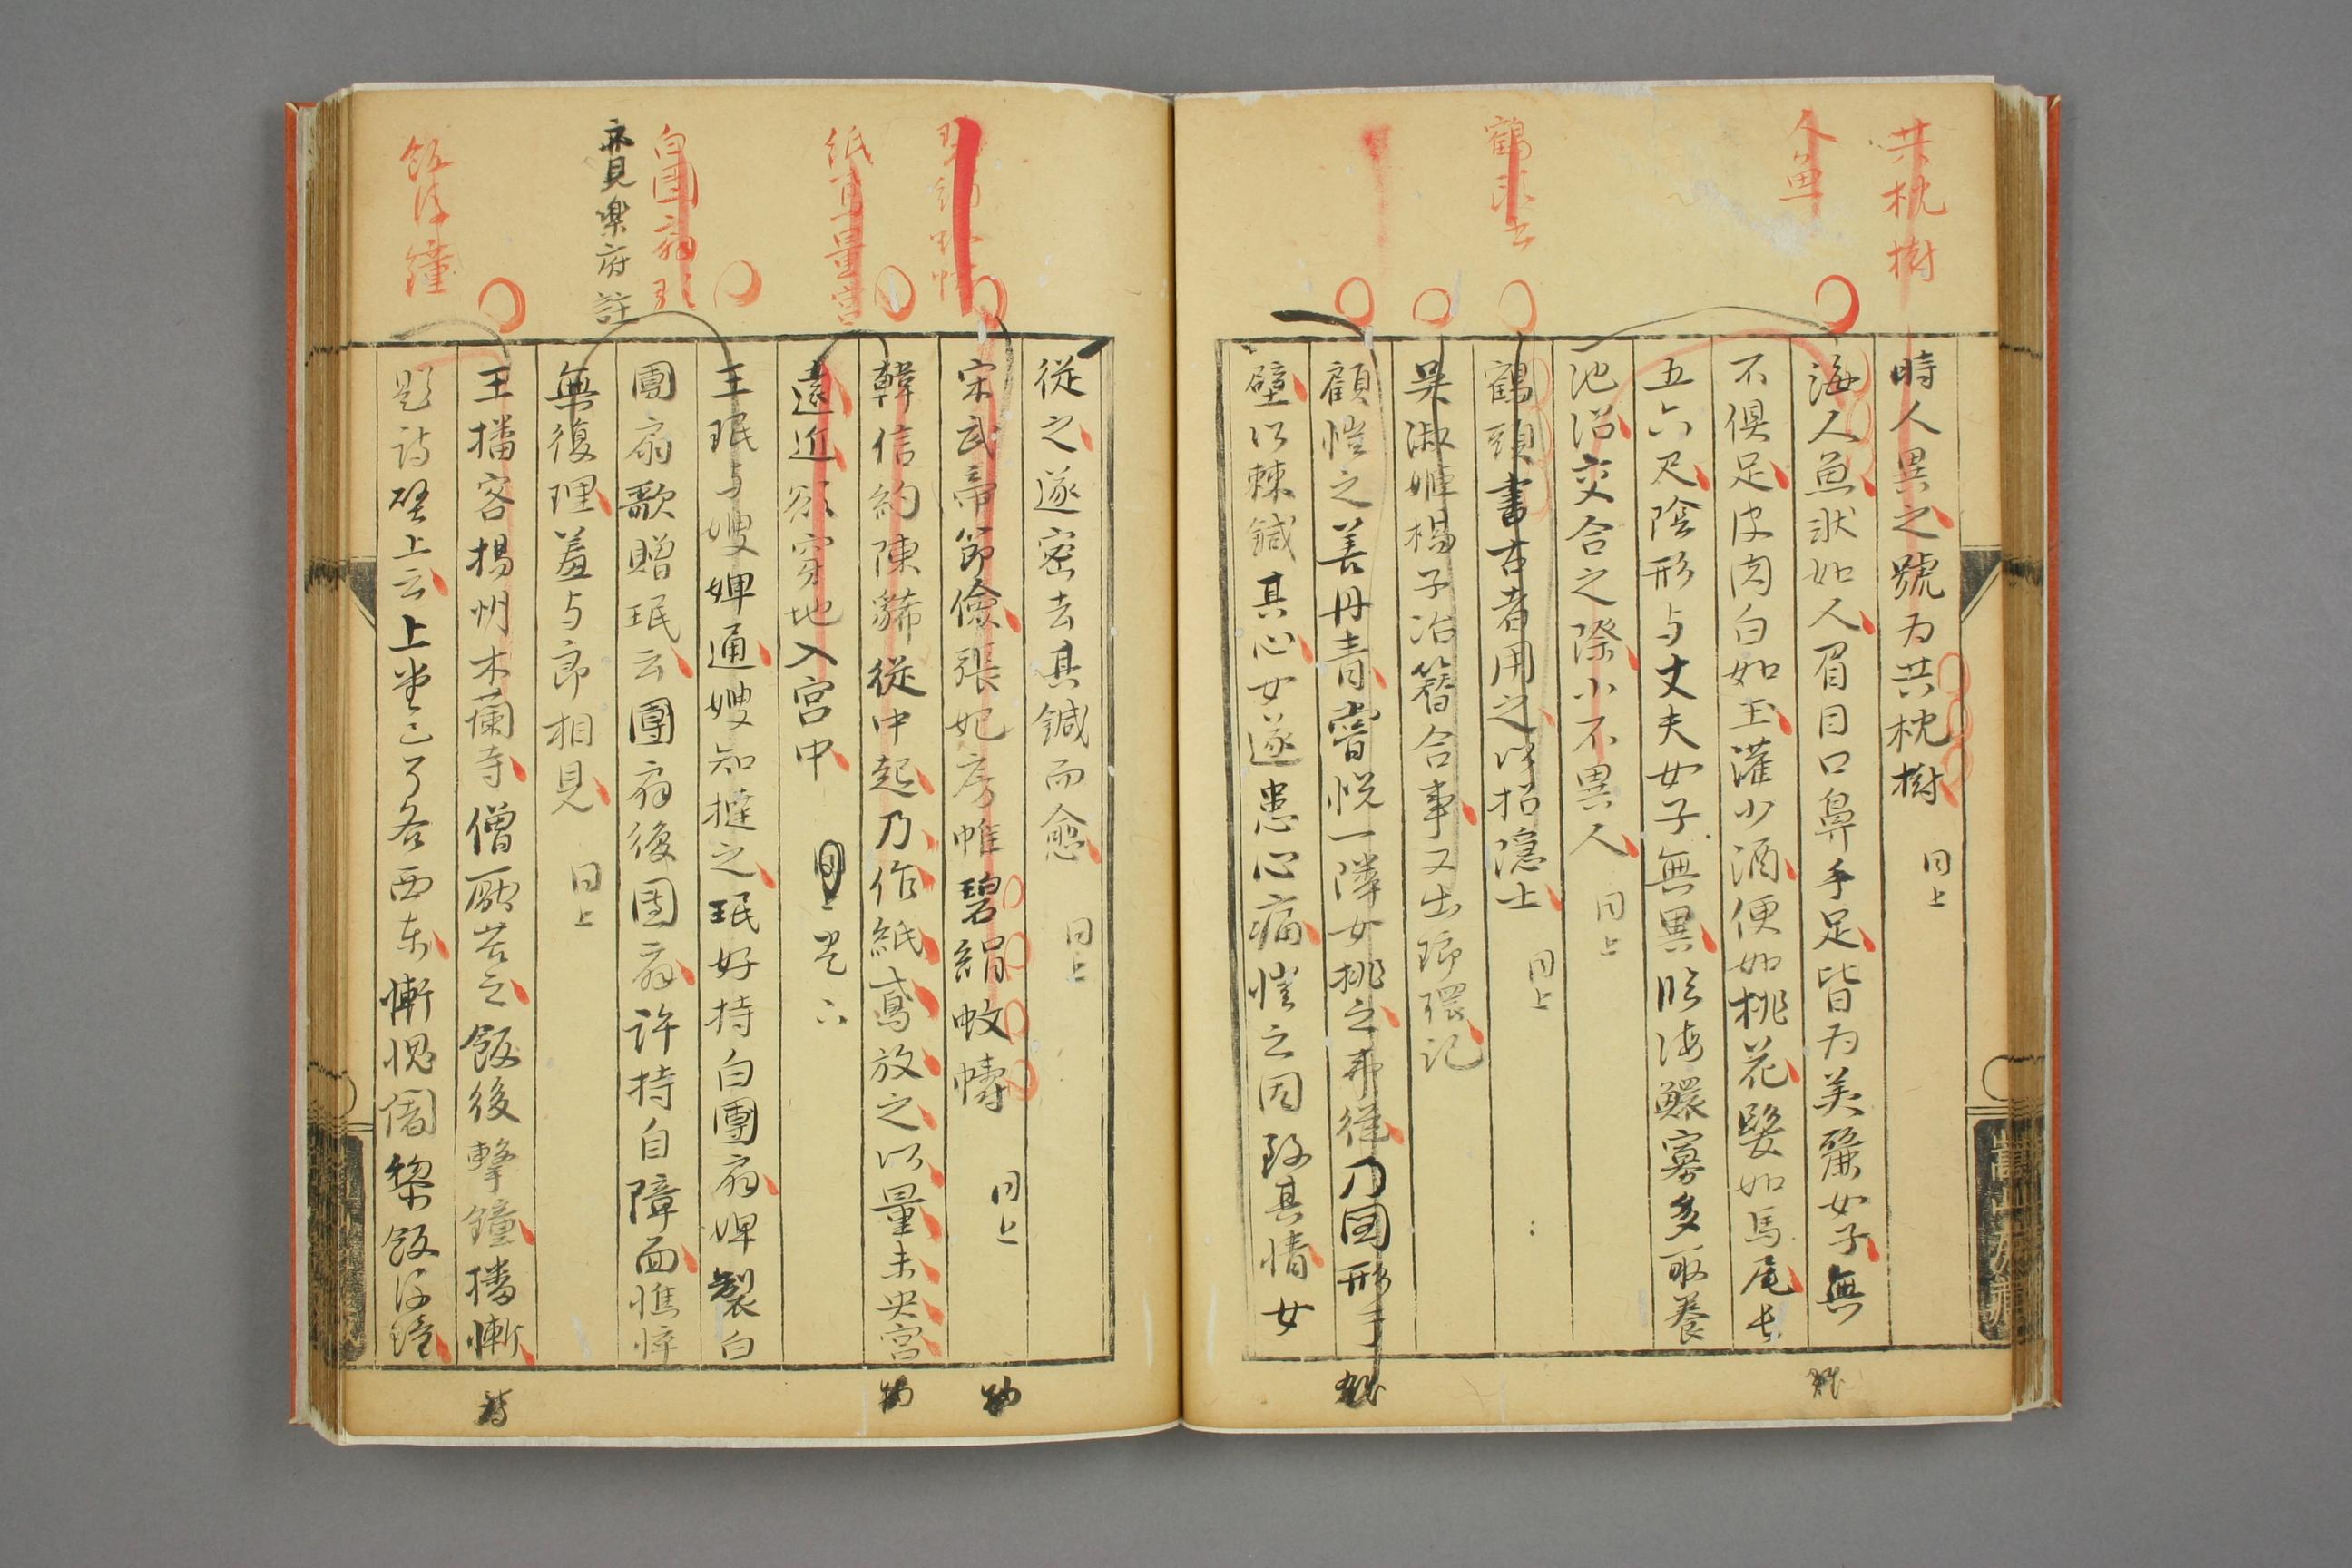 共枕樹
時人異之號为共枕樹 同上
人魚
海人魚狀如人眉目口鼻手足皆为美麗女子無
不俱足皮肉白如玉灌少酒便如桃花髮如馬尾長
五六尺陰形与丈夫女子無異臨海鰥寡多取養
池沼交合之際小不異人 同上
鶴頭書
鶴頭書古者用之以招隱士 同上
吴淑姬楊子冶簪合事又出瑯環記
顧愷之善丹青嘗悦一隣女挑之弗從乃圖形于
壁以棘鍼其心女遂患心痛愷之因致其情女
從之遂密去其鍼而愈 同上
宋武帝節儉張妃房帷碧絹蚊幬 同上
紙鳶量宫
韓信約陳豨從中起乃作紙鳶放之以量未央宫
遠近欲穿地入宫中
白團扇
亦見樂府註
王珉与嫂婢通嫂知撻之珉好持白團扇婢製白
團扇歌贈珉云團扇後團扇許持自障面憔悴
無復理羞与郎相見 同上
飯後鐘
王播客楊州木蘭寺僧厭苦之飯後擊鐘播慚
题诗壁上云上堂已了各西东慚愧闍黎飯後鐘